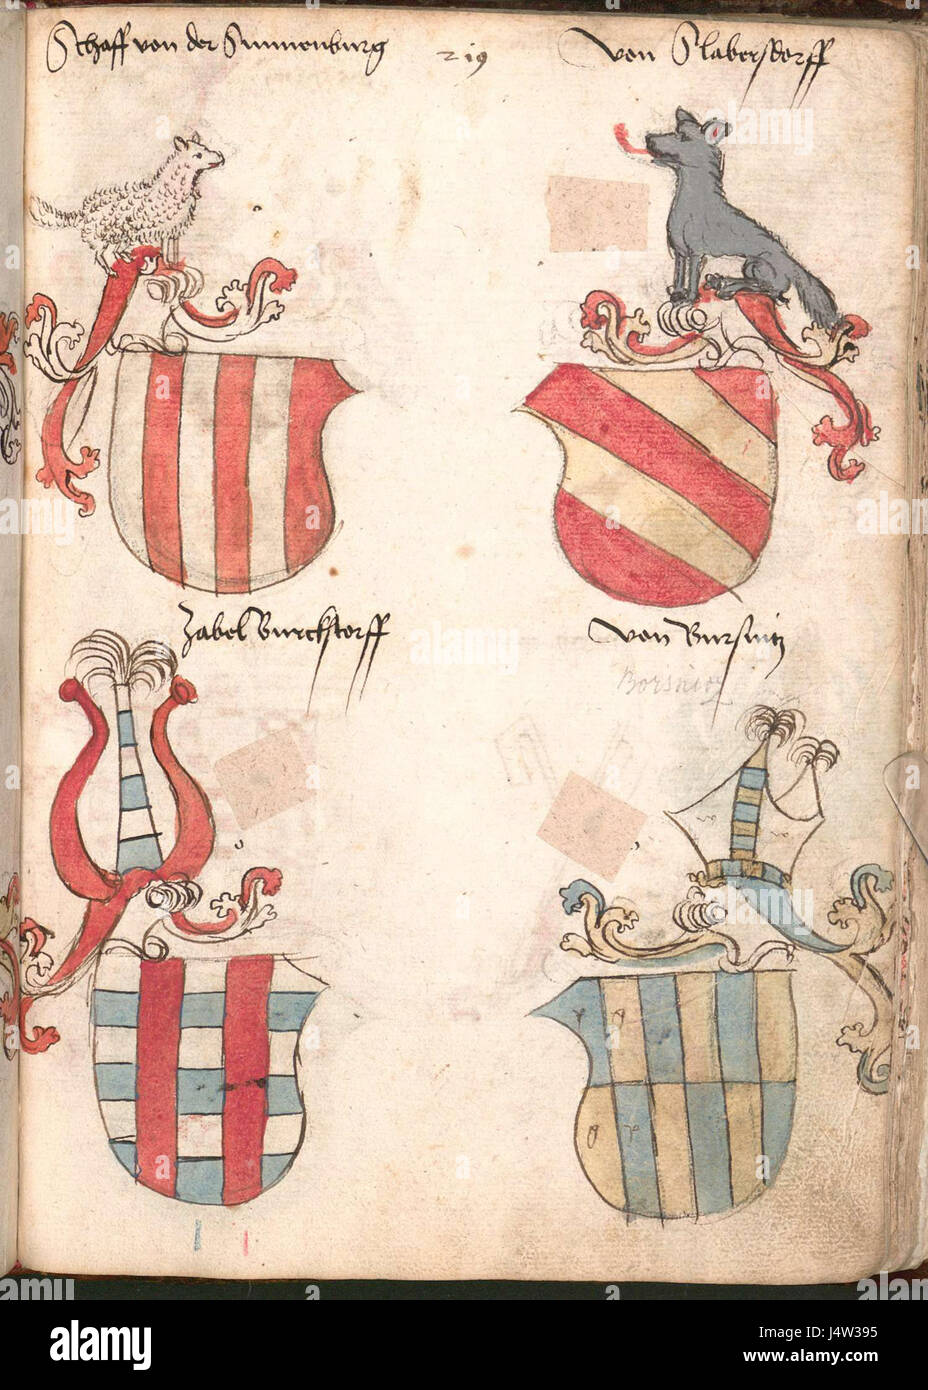 Schaff von der Sunnenburg
219
von Slabersdorff
Zabel Burckstorff
von Bursnitz
Borsnicz
a alamy stock photo
J4W395
www.alamy.com